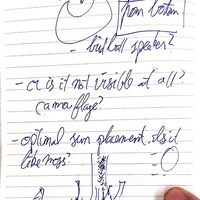 from bottom
- bird ball speaker?
- or is it not visible at all?
camaflage?
- optimal sun placement,
like mojs?